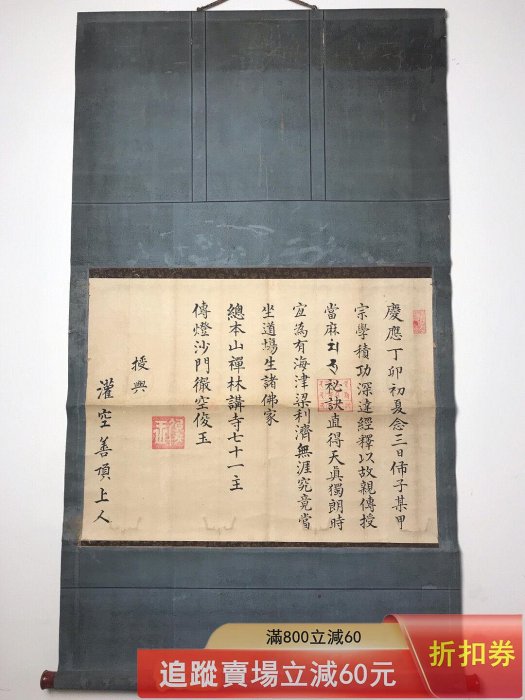 慶應丁卯初夏念三日佈子某甲
宗學積功深達經釋以故親傳授
當麻
秘訣直得天眞獨朗時
宜為有海津梁利濟無涯究竟當
坐道場生諸佛家
總本山禪林講寺七十一主
傳燈沙門徹空俊玉
授與
灌空善頂上人
滿800立減60
追蹤賣場立減60元
折扣券